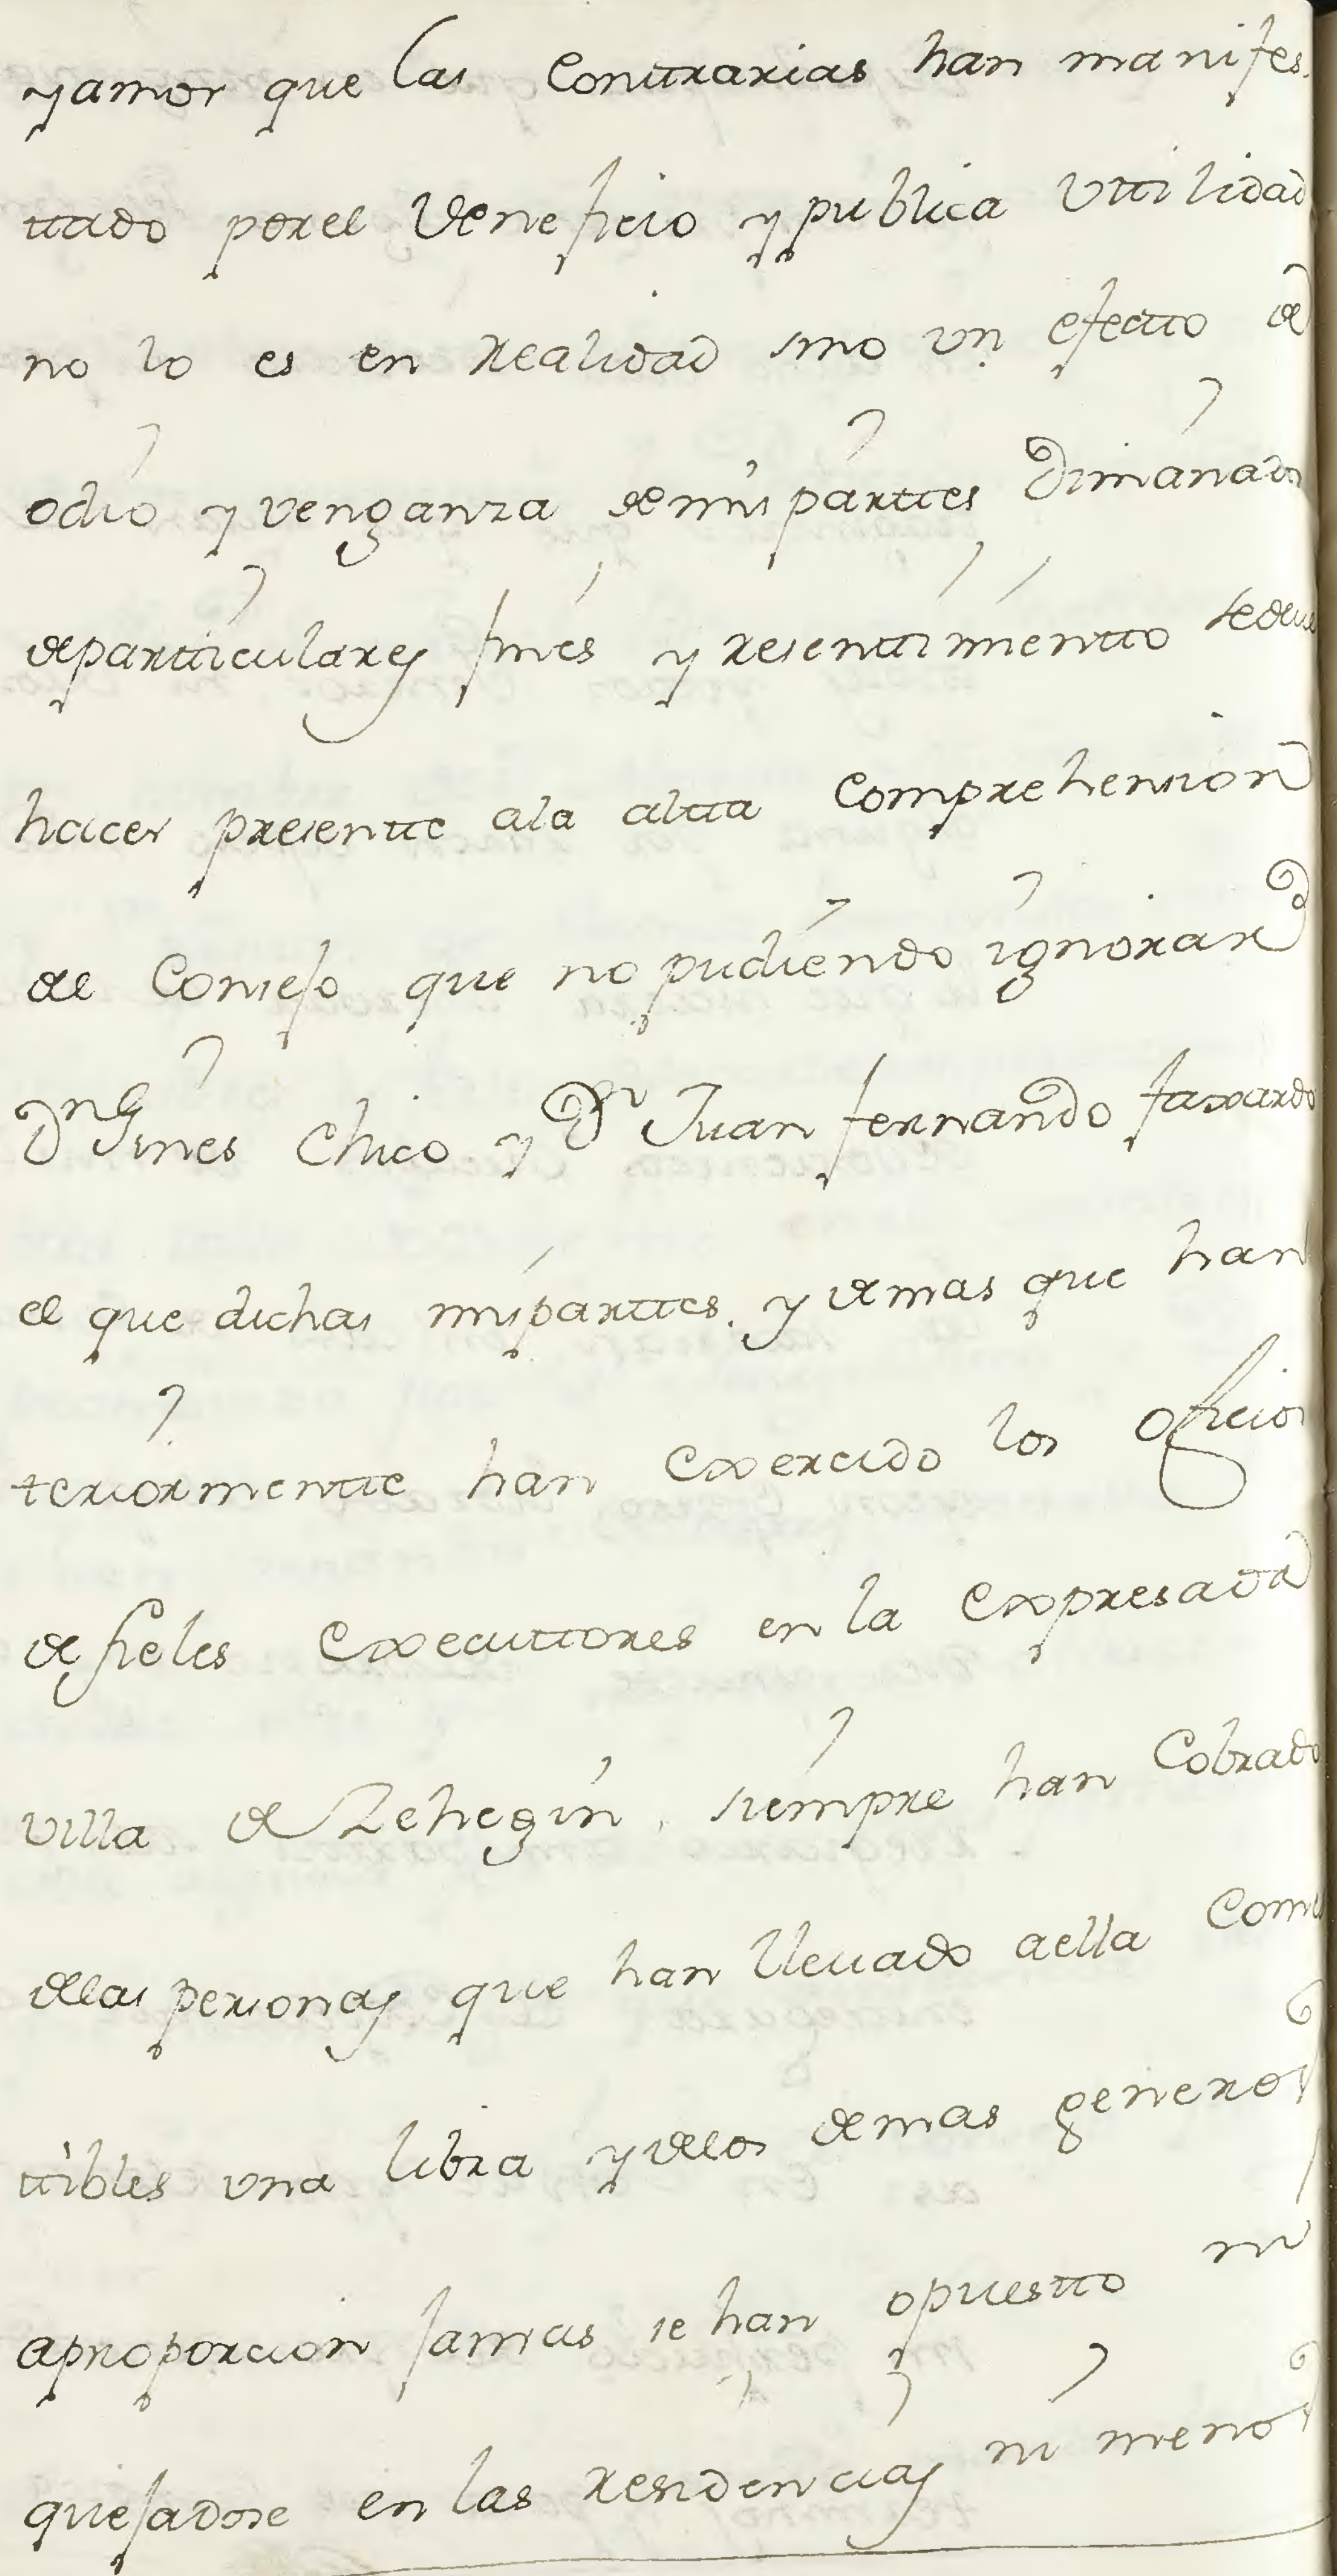 y amor que las Conttrarias han manifes-
ttado por el Veneficio y publica Vttilidad
no lo es en Realidad sino vn efectto de
odio y venganza de mis parttes dimanado
de partticulares fines y resenttimientto se deve
hacer presentte a la altta Comprehension
del Consejo que no pudiendo ignorar
Dn Gines Chico y Dn Juan fernando faxardo
el que dichas mis parttes. y demas que han
teriormentte han Exercido los oficios
de fieles Executtores en la Expresada
villa de Zehegin, siempre han Cobrado
de las personas que han llevado a ella Comes
ttibles vna libra y de los demas generos
a proporcion jamas se han opuestto ni
quejadose en las residencias ni menos